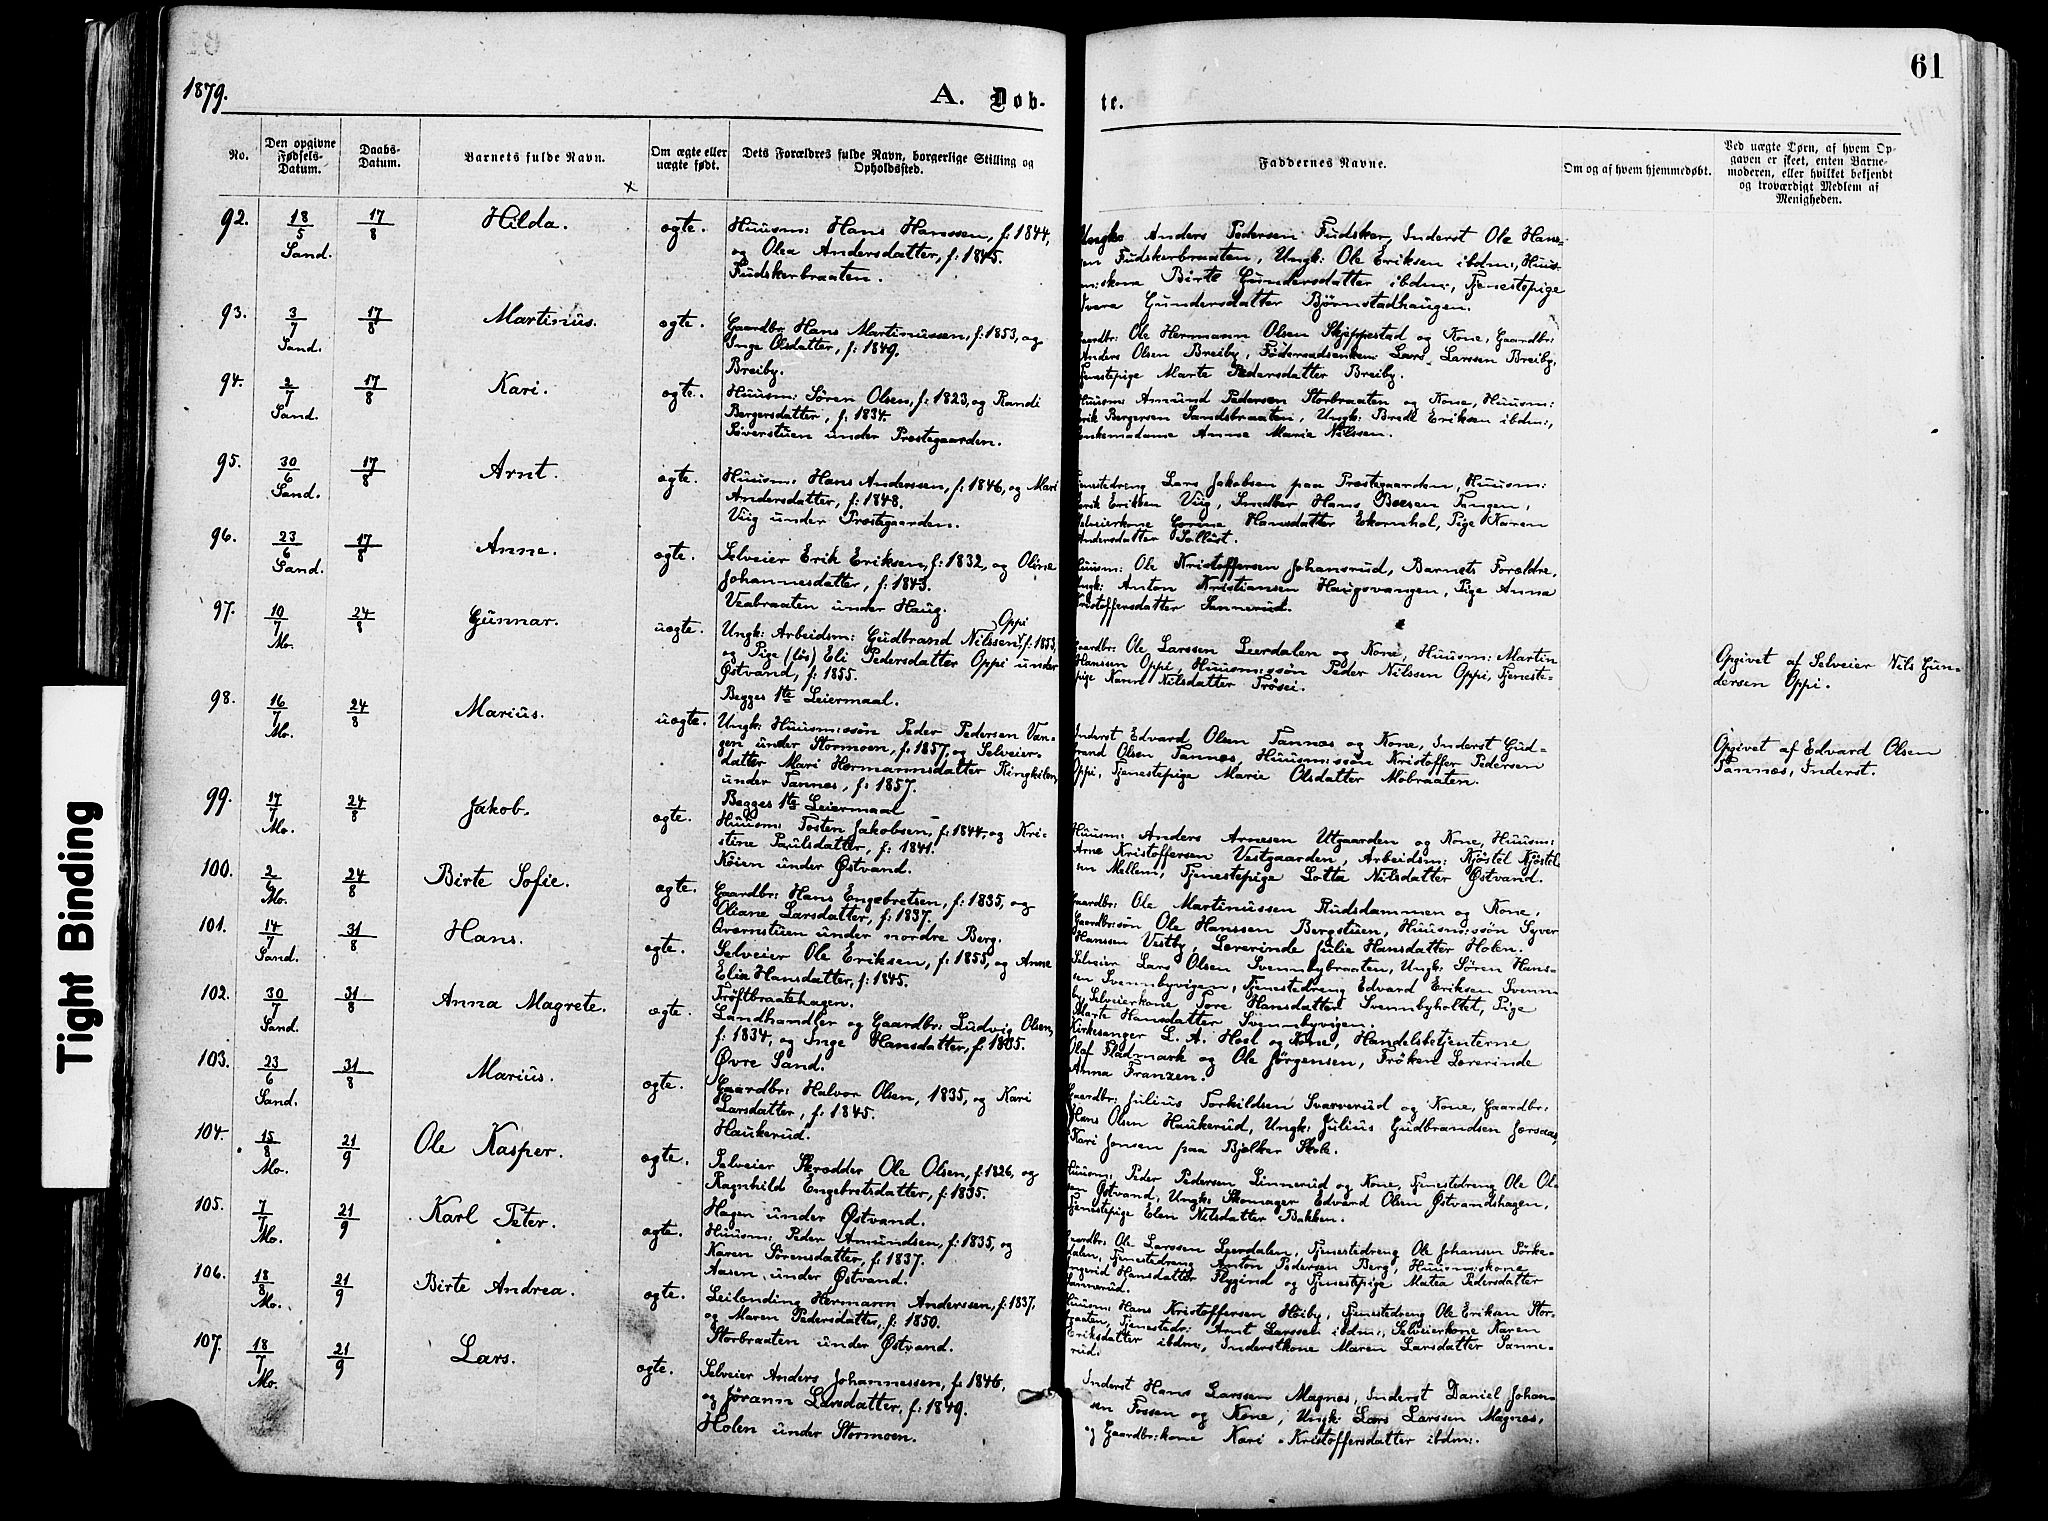 61
1879.
A. Døb-
te.
No.
Den opgivne
Fødsels-
Datum.
Daabs-
Datum.
Barnets fulde Navn.
Om ægte eller
uægte født.
Dets Forældres fulde Navn, borgerlige Stilling og
Opholdssted.
Faddernes Navne.
Om og af hvem hjemmedøbt.
Ved uægte Børn, af hvem Op-
gaven er skeet, enten Barne-
moderen, eller hvilket bekjendt
og troværdigt Medlem af
Menigheden.
92. 18/5 Sand. 17/8 Hilda. ægte.
Huusm: Hans Hanssen, f: 1844,
og Olea Andersdatter, f: 1845.
Fudskerbraaten.
Ungk: Anders Pedersen Fudsker, Inderst Ole Hans-
en Fudskerbraaten, Ungk: Ole Eriksen ibdm:, Huus-
m:skone Birte Gundersdatter ibdm:, Tjenestepige
Gundersdatter Bjørnstadhaugen.
93. 3/7 Sand. 17/8 Martinius. ægte.
Gaardbr: Hans Martinussen, f: 1853, og
Inge Olsdatter, f: 1849.
Breiby.
Gaardbr: Ole Hermann Olsen Skjppestad og Kone, Gaardbr:
Anders Olsen Breiby, Føderaadsenkem: Lars Larssen Breiby,
Tjenestepige Marte Pedersdatter Breiby.
94. 2/7 Sand. 17/8 Kari. ægte.
Huusm: Søren Olsen, f: 1823, og Randi
Bergersdatter, f: 1834.
Søverstuen under Præstegaarden.
Huusm: Amund Pedersen Storbraaten og Kone, Huusm:
Erik Bergersen Sandsbraaten, Ungk: Bredl Eriksen ibdm:,
Enkemadame Anne Marie Nilssen.
95. 30/6 Sand. 17/8 Arnt. ægte.
Huusm: Hans Anderssen, f: 1846, og Mari
Andersdatter, f: 1848.
Viig under Præstegaarden.
Tjenestedreng Lars Jakobsen paa Præstegaarden, Huusm:
Erik Eriksen Viig, Hans Tangen,
Selveierkone Hansdatter Ekornhol, Pige Karen
Andersdatter Sollist.
96. 23/6 Sand. 17/8 Anne. ægte.
Selveier Erik Eriksen, f: 1832, og Oline
Johannesdatter, f: 1843.
Veabraaten under Haug.
Huusm: Ole Kristoffersen Johansrud, Barnets Forældre,
Ungk: Anton Kristiansen Haugsvangen, Pige Anna
Kristoffersdatter Sannerud.
97. 10/7 Mo. 24/8 Gunnar. uægte.
Oppi
Ungk: Arbeidsm: Gudbrand Nilssen, f: 1853,
og Pige (løs) Eli Pedersdatter Oppi under
Østvand, f: 1855.
Begges 1te Leiermaal.
Gaardbr: Ole Larssen Leerdalen og Kone, Huusm: Martin
Hanssen Oppi, Huusm:søn Peder Nilssen Oppi, Tjeneste-
pige Karen Nilsdatter Trøsei.
Opgivet af Selveier Nils Gun-
dersen Oppi.
98. 16/7 Mo. 24/8 Marius. uægte.
Ungk: Huusm:søn Peder Pedersen Van-
gen under Stormoen, f: 1857, og Selveier-
datter Mari Hermannsdatter Ringkilen
under Tannæs, f: 1857.
Begges 1te Leiermaal
Inderst Edvard Olsen Tannæs og Kone, Inderst Gud-
brand Olsen Tannæs, Huusm:søn Kristoffer Pedersen
Oppi, Tjenestepige Marie Olsdatter Mobraaten.
Opgivet af Edvard Olsen
Tannæs, Inderst.
99. 17/7 Mo. 24/8 Jakob. ægte.
Huusm: Tosten Jakobsen, f: 1844, og Kri-
stine Paulsdatter, f: 1841.
Køien under Østvand.
Huusm: Anders Arnesen Utgaarden og Kone, Huusm:
Arne Kristoffersen Vestgaarden, Arbeidsm: Kjøstel Kjøstel-
sen Mellem, Tjenestepige Lotta Nilsdatter Østvand.
100. 2/6 Mo. 24/8 Birte Sofie. ægte.
Gaardbr: Hans Engebretsen, f: 1835, og
Oliane Larsdatter, f: 1837.
Qværnstuen under nordre Berg.
Gaardbr: Ole Martinussen Rudsdammen og Kone,
Gaardbr:søn Ole Hanssen Bergstuen, Huusm:søn Syver
Hanssen Vestby, Lærerinde Julie Hansdatter Holen.
101. 14/7 Sand. 31/8 Hans. ægte.
Selveier Ole Eriksen, f: 1853, og Anne
Elia Hansdatter, f: 1845.
Trøftbraatehagen.
Selveier Lars Olsen Svennbybraaten, Ungk: Søren Hans-
sen Svennbyvigen, Tjenestedreng Edvard Eriksen Svenn-
by, Selveierkone Tore Hansdatter Svennbyholtet, Pige
Marte Hansdatter Svennbyvigen.
102. 30/7 Sand. 31/8 Anna Magrete. ægte.
Landhandler og Gaardbr: Ludvig Olsen,
f: 1834, og Inge Hansdatter, f: 1835.
Øvre Sand.
Kirkesanger L. A. Høsl og Kone, Handelsbetjenterne
Olaf Fladmark og Ole Jørgensen, Frøken Lærerinde
Anna Franzen.
103. 23/6 Sand. 31/8 Marius. ægte.
Gaardbr: Halvor Olsen, 1835, og Kari
Larsdatter, f: 1845.
Haukerud.
Gaardbr: Julius Torkildsen Svarverud og Kone, Gaardbr:
Hans Olsen Haukerud, Ungk: Julius Gudbrandsen Jørsaas,
Kari Jensen paa Bjølker Skole.
104. 15/8 Mo. 21/9 Ole Kasper. ægte.
Selveier Skrædder Ole Olsen, f: 1826, og
Ragnhild Engebretsdatter, f: 1835.
Hagen under Østvand.
Huusm: Peder Pedersen Linnerud og Kone, Tjenestedreng Ole Ol-
sen Østvand, Ungk: Skomager Edvard Olsen Østvandshagen,
Tjenestepige Elen Nilsdatter Bakken.
105. 7/7 Mo. 21/9 Karl Peter. ægte.
Huusm: Peder Amundsen, f: 1835, og
Karen Sørensdatter, f: 1837.
Aasen under Østvand.
Gaardbr: Ole Larssen Leerdalen, Tjenestedreng Ole Johansen Sørke-
dalen, Tjenestedreng Anton Pedersen Berg, Huusm:skone
Ingerid Hansdatter Flygind og Tjenestepige Matea Pedersdatter
Sannerud.
106. 18/8 Mo. 21/9 Birte Andrea. ægte.
Leilænding Hermann Anderssen, f: 1837,
og Maren Pedersdatter, f: 1850.
Storbraaten under Østvand.
Huusm: Hans Kristoffersen Høiby, Tjenestedreng Ole Eriksen Stor-
braaten, Tjenestedr: Arnt Larssen ibdm:, Selveierkone Karen
Eriksdatter ibdm:, Inderstkone Maren Larsdatter Sanne-
rud.
107. 18/7 Mo. 21/9 Lars. ægte.
Selveier Anders Johannessen, f: 1846,
og Jørann Larsdatter, f: 1849.
Holen under Stormoen.
Inderst Hans Larssen Magnæs, Inderst Daniel Johan-
sen Fossen og Kone, Ungk: Lars Larssen Magnæs,
og Gaardbr:kone Kari Kristoffersdatter ibdm:.
Tight Binding